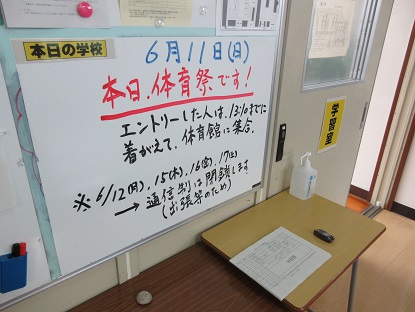 本日の学校
6月11日(日)
本日、体育祭です!
エントリーした人は、13:10までに
着がえて、体育館に集合。
※ 6/12(月)、15(木)、16(金)、17(土)
→ 通信制は閉鎖します
(出張等のため)
学習室